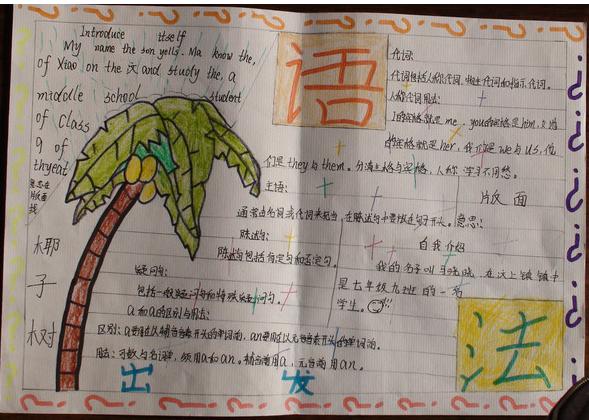 Introduce itself
My name the son yells. Ma know the,
of Xiao on the 汉 and study the, a
middle school student
of Class
9 of
thryent
意思在
片反面
找
椰
子
树
语
代词:
代词包括人称代词、物主代词和指示代词。
人称代词用法:
I的宾格就是me、you的宾格是him,
的宾格就是her,我们是we与us,他
们是they与them。分清主格与宾格,人称学习不用愁。
主语:
通常由名词或代词来充当,在陈述句中要放在句子开头。
陈述句:
陈述句包括肯定句和否定句。
疑问句:
包括一般疑问句和特殊疑问句。
a和an的区别与用法:
区别:a要用在以辅音音素开头的单词前,an要用在以元音音素开头的单词前。
用法:可数与名词单,须用a和an。辅音前用a,元音前用an。
片反面
意思:
自我介绍
我的名字叫
是七年级九班的一名
学生。
法
出发